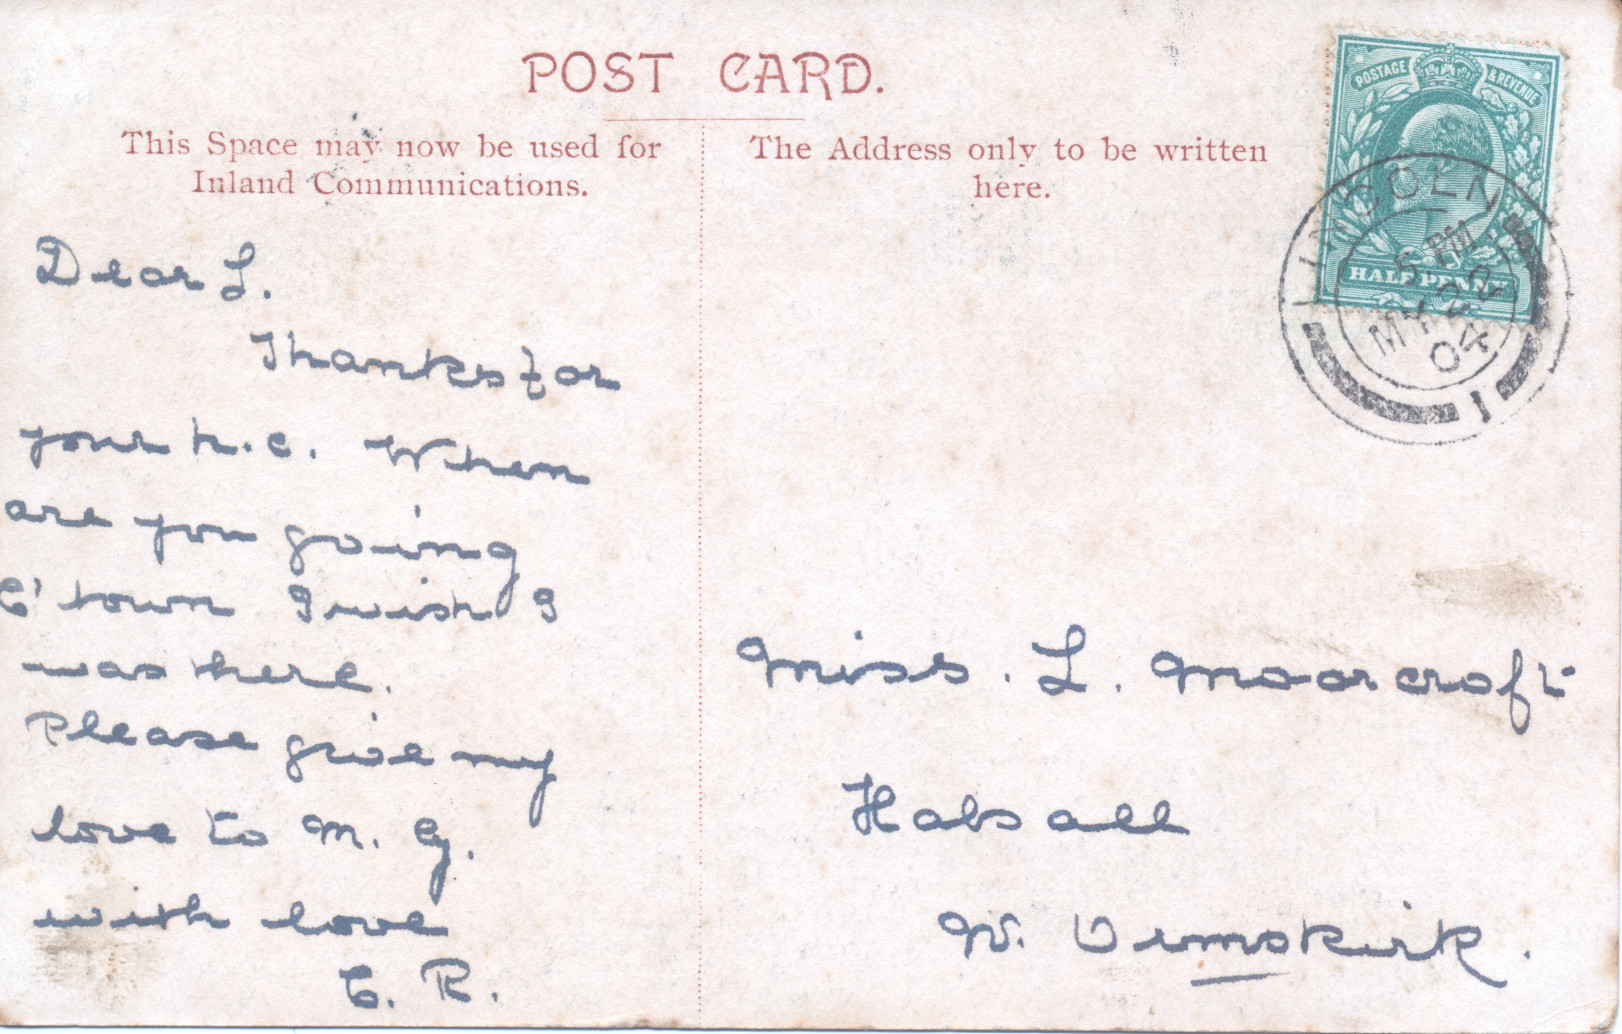 POST CARD.
This Space may now be used for
Inland Communications.
The Address only to be written
here.
POSTAGE & REVENUE
HALFPENNY
LINCOLN
5 PM
MY 22
04
1
Dear L.
Thanks for
your p.c. When
are you going
C'town I wish I
was here.
Please give my
love to M. G.
with love
C. R.
Miss. L. Moorcroft
Halsall
N. Ormskirk.